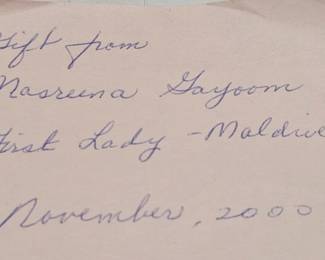 Gift from
Nasreena Gayoom
First Lady - Maldive
November, 2000